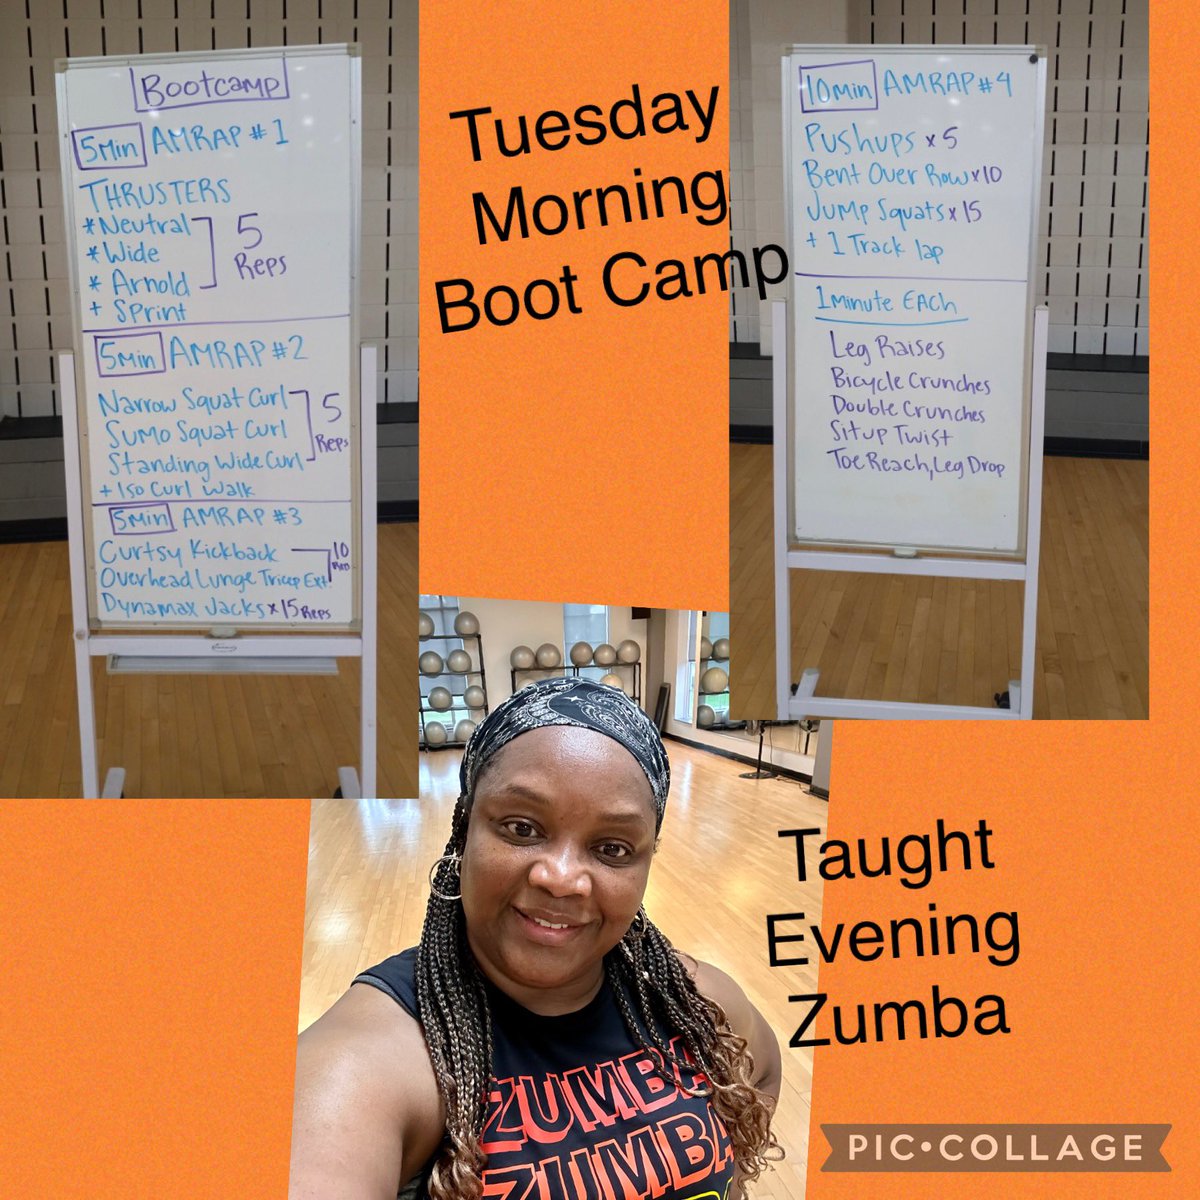 Bootcamp
5Min AMRAP #1
THRUSTERS
*Neutral
*Wide
*Arnold
5 Reps
+ Sprint
5Min AMRAP #2
Narrow Squat Curl
Sumo Squat Curl
Standing Wide Curl
5 Reps
+ Iso Curl Walk
5Min AMRAP #3
Curtsy Kickback
Overhead Lunge Tricep Ext.
10
Dynamax Jacks x 15 Reps
Tuesday
Morning
Boot Camp
10min AMRAP #4
Pushups x 5
Bent Over Row x10
Jump Squats x 15
+ 1 Track lap
1 Minute EACH
Leg Raises
Bicycle Crunches
Double Crunches
Situp Twist
Toe Reach, Leg Drop
Taught
Evening
Zumba
ZUMBA
ZUMBA
PIC•COLLAGE